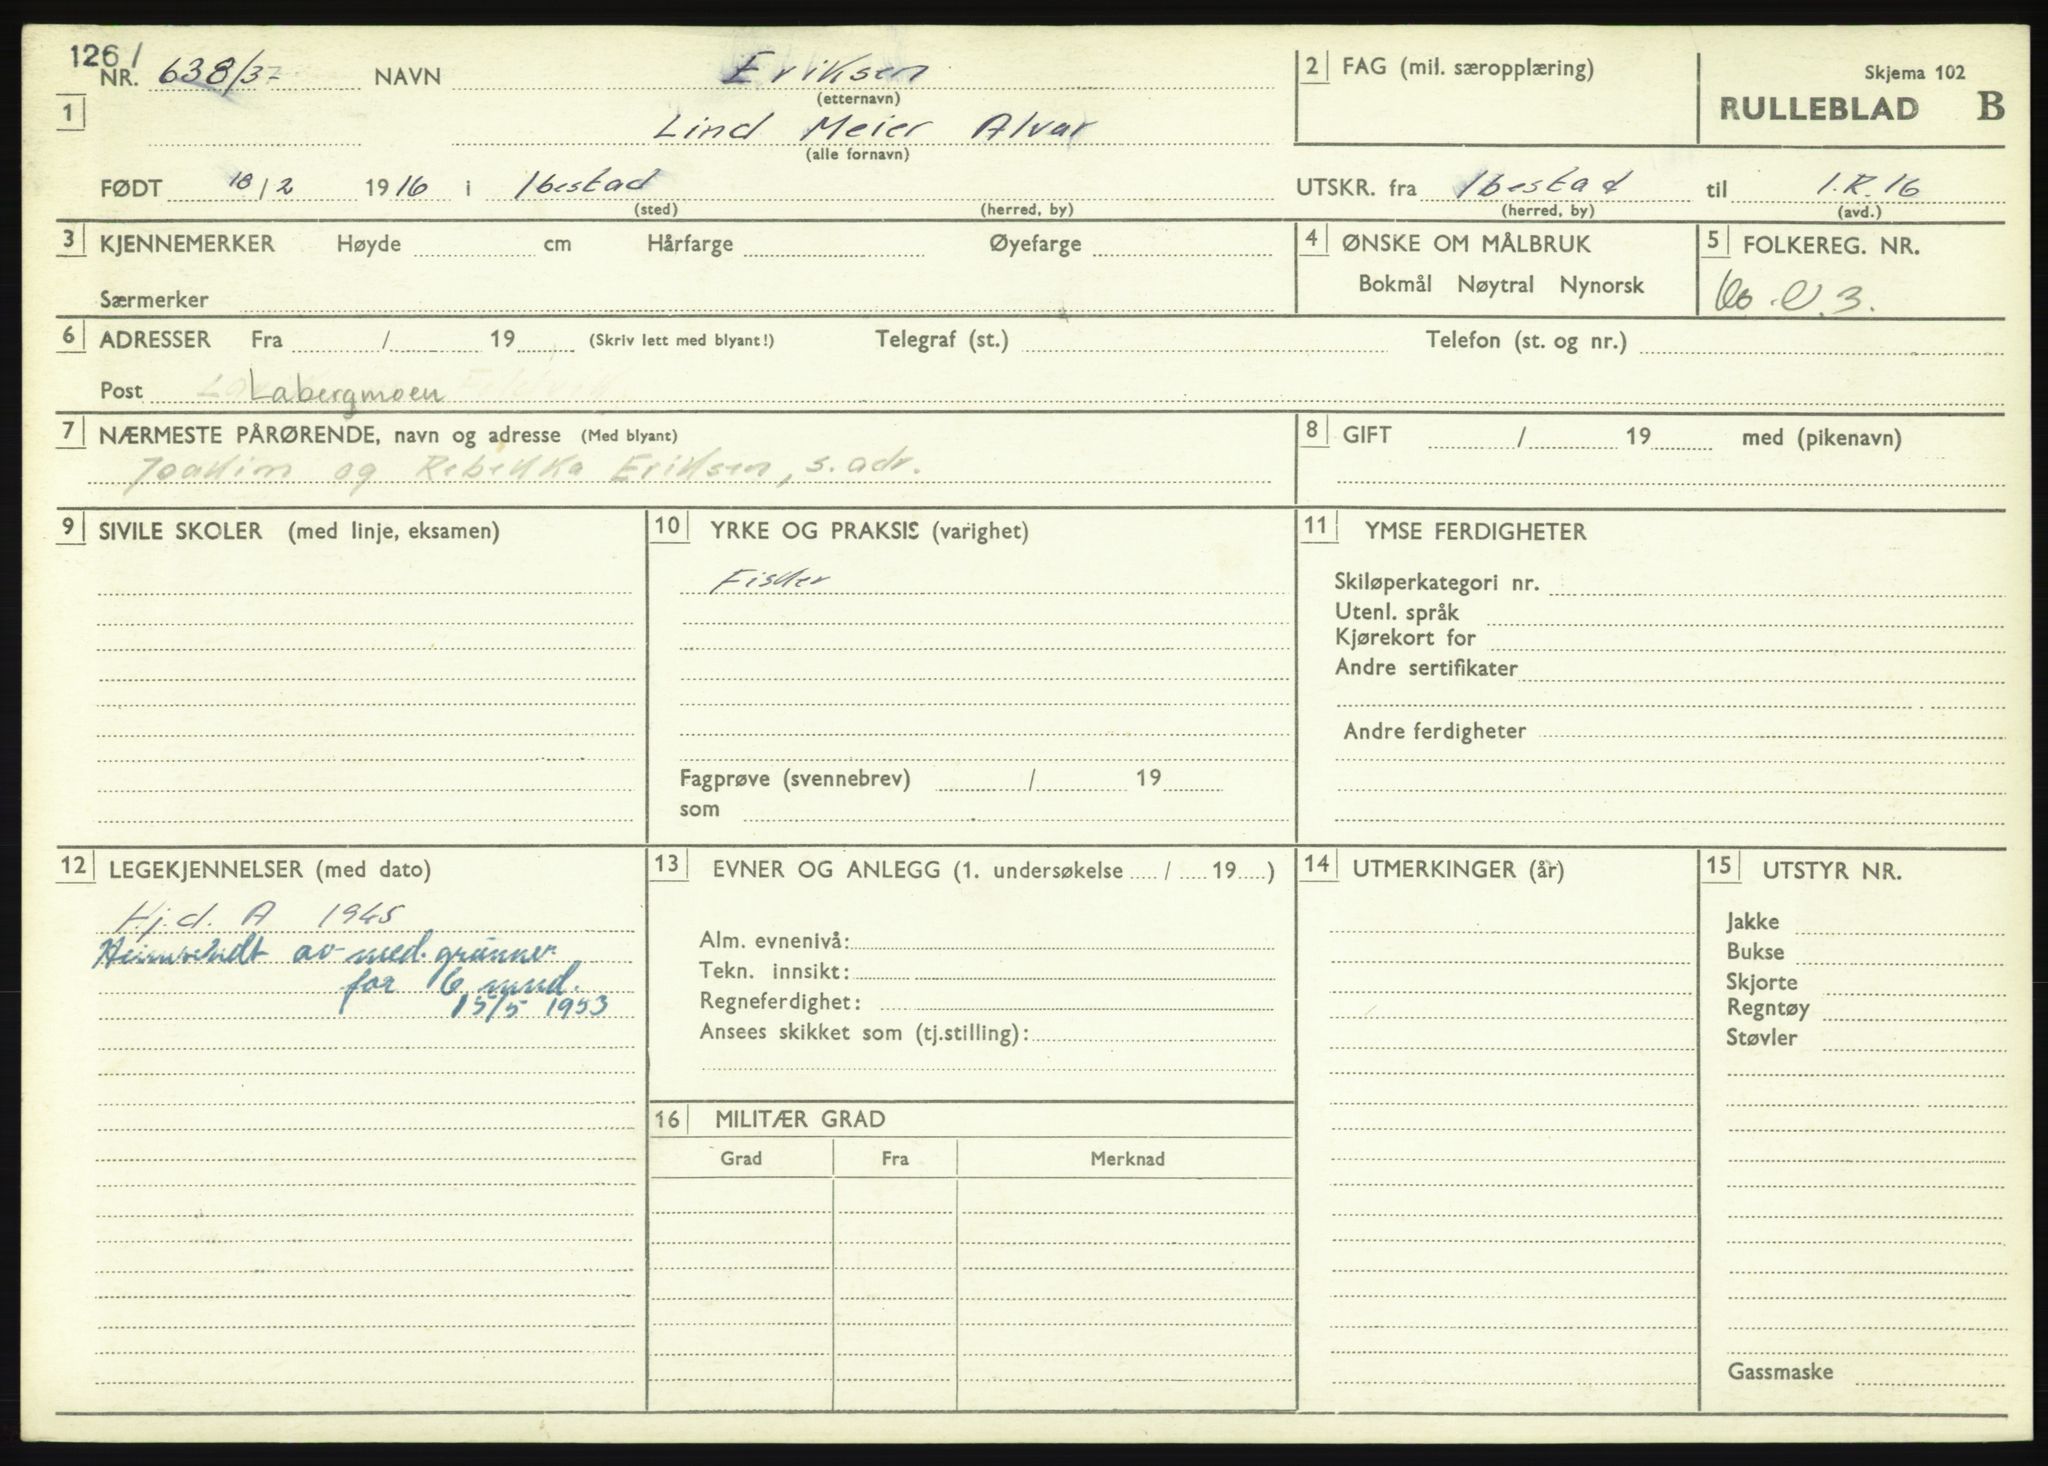 126/
NR. 638/37 NAVN Eriksen
(etternavn)
1
Lind Meier Alvar
(alle fornavn)
FØDT 18/2 1916 i Ibestad
(sted) (herred, by)
2 FAG (mil. særopplæring)
Skjema 102
RULLEBLAD B
UTSKR. fra Ibestad til I.R.16
(herred, by) (avd.)
3 KJENNEMERKER Høyde cm Hårfarge Øyefarge
Særmerker
4 ØNSKE OM MÅLBRUK
Bokmål Nøytral Nynorsk
5 FOLKEREG. NR.
6 ADRESSER Fra / 19 (Skriv lett med blyant!) Telegraf (st.) Telefon (st. og nr.)
Post Labergmoen
7 NÆRMESTE PÅRØRENDE, navn og adresse (Med blyant)
Joakim og Rebekka Eriksen, s. adr.
8 GIFT / 19 med (pikenavn)
9 SIVILE SKOLER (med linje, eksamen)
10 YRKE OG PRAKSIS (varighet)
Fisker
Fagprøve (svennebrev) / 19
som
11 YMSE FERDIGHETER
Skiløperkategori nr.
Utenl. språk
Kjørekort for
Andre sertifikater
Andre ferdigheter
12 LEGEKJENNELSER (med dato)
Hj.d. A 1945
Heimsendt av med. grunner
for 6 mnd.
15/5 1953
13 EVNER OG ANLEGG (1. undersøkelse / 19 )
Alm. evnenivå:
Tekn. innsikt:
Regneferdighet:
Ansees skikket som (tj.stilling):
14 UTMERKINGER (år)
15 UTSTYR NR.
Jakke
Bukse
Skjorte
Regntøy
Støvler
Gassmaske
16 MILITÆR GRAD
Grad Fra Merknad